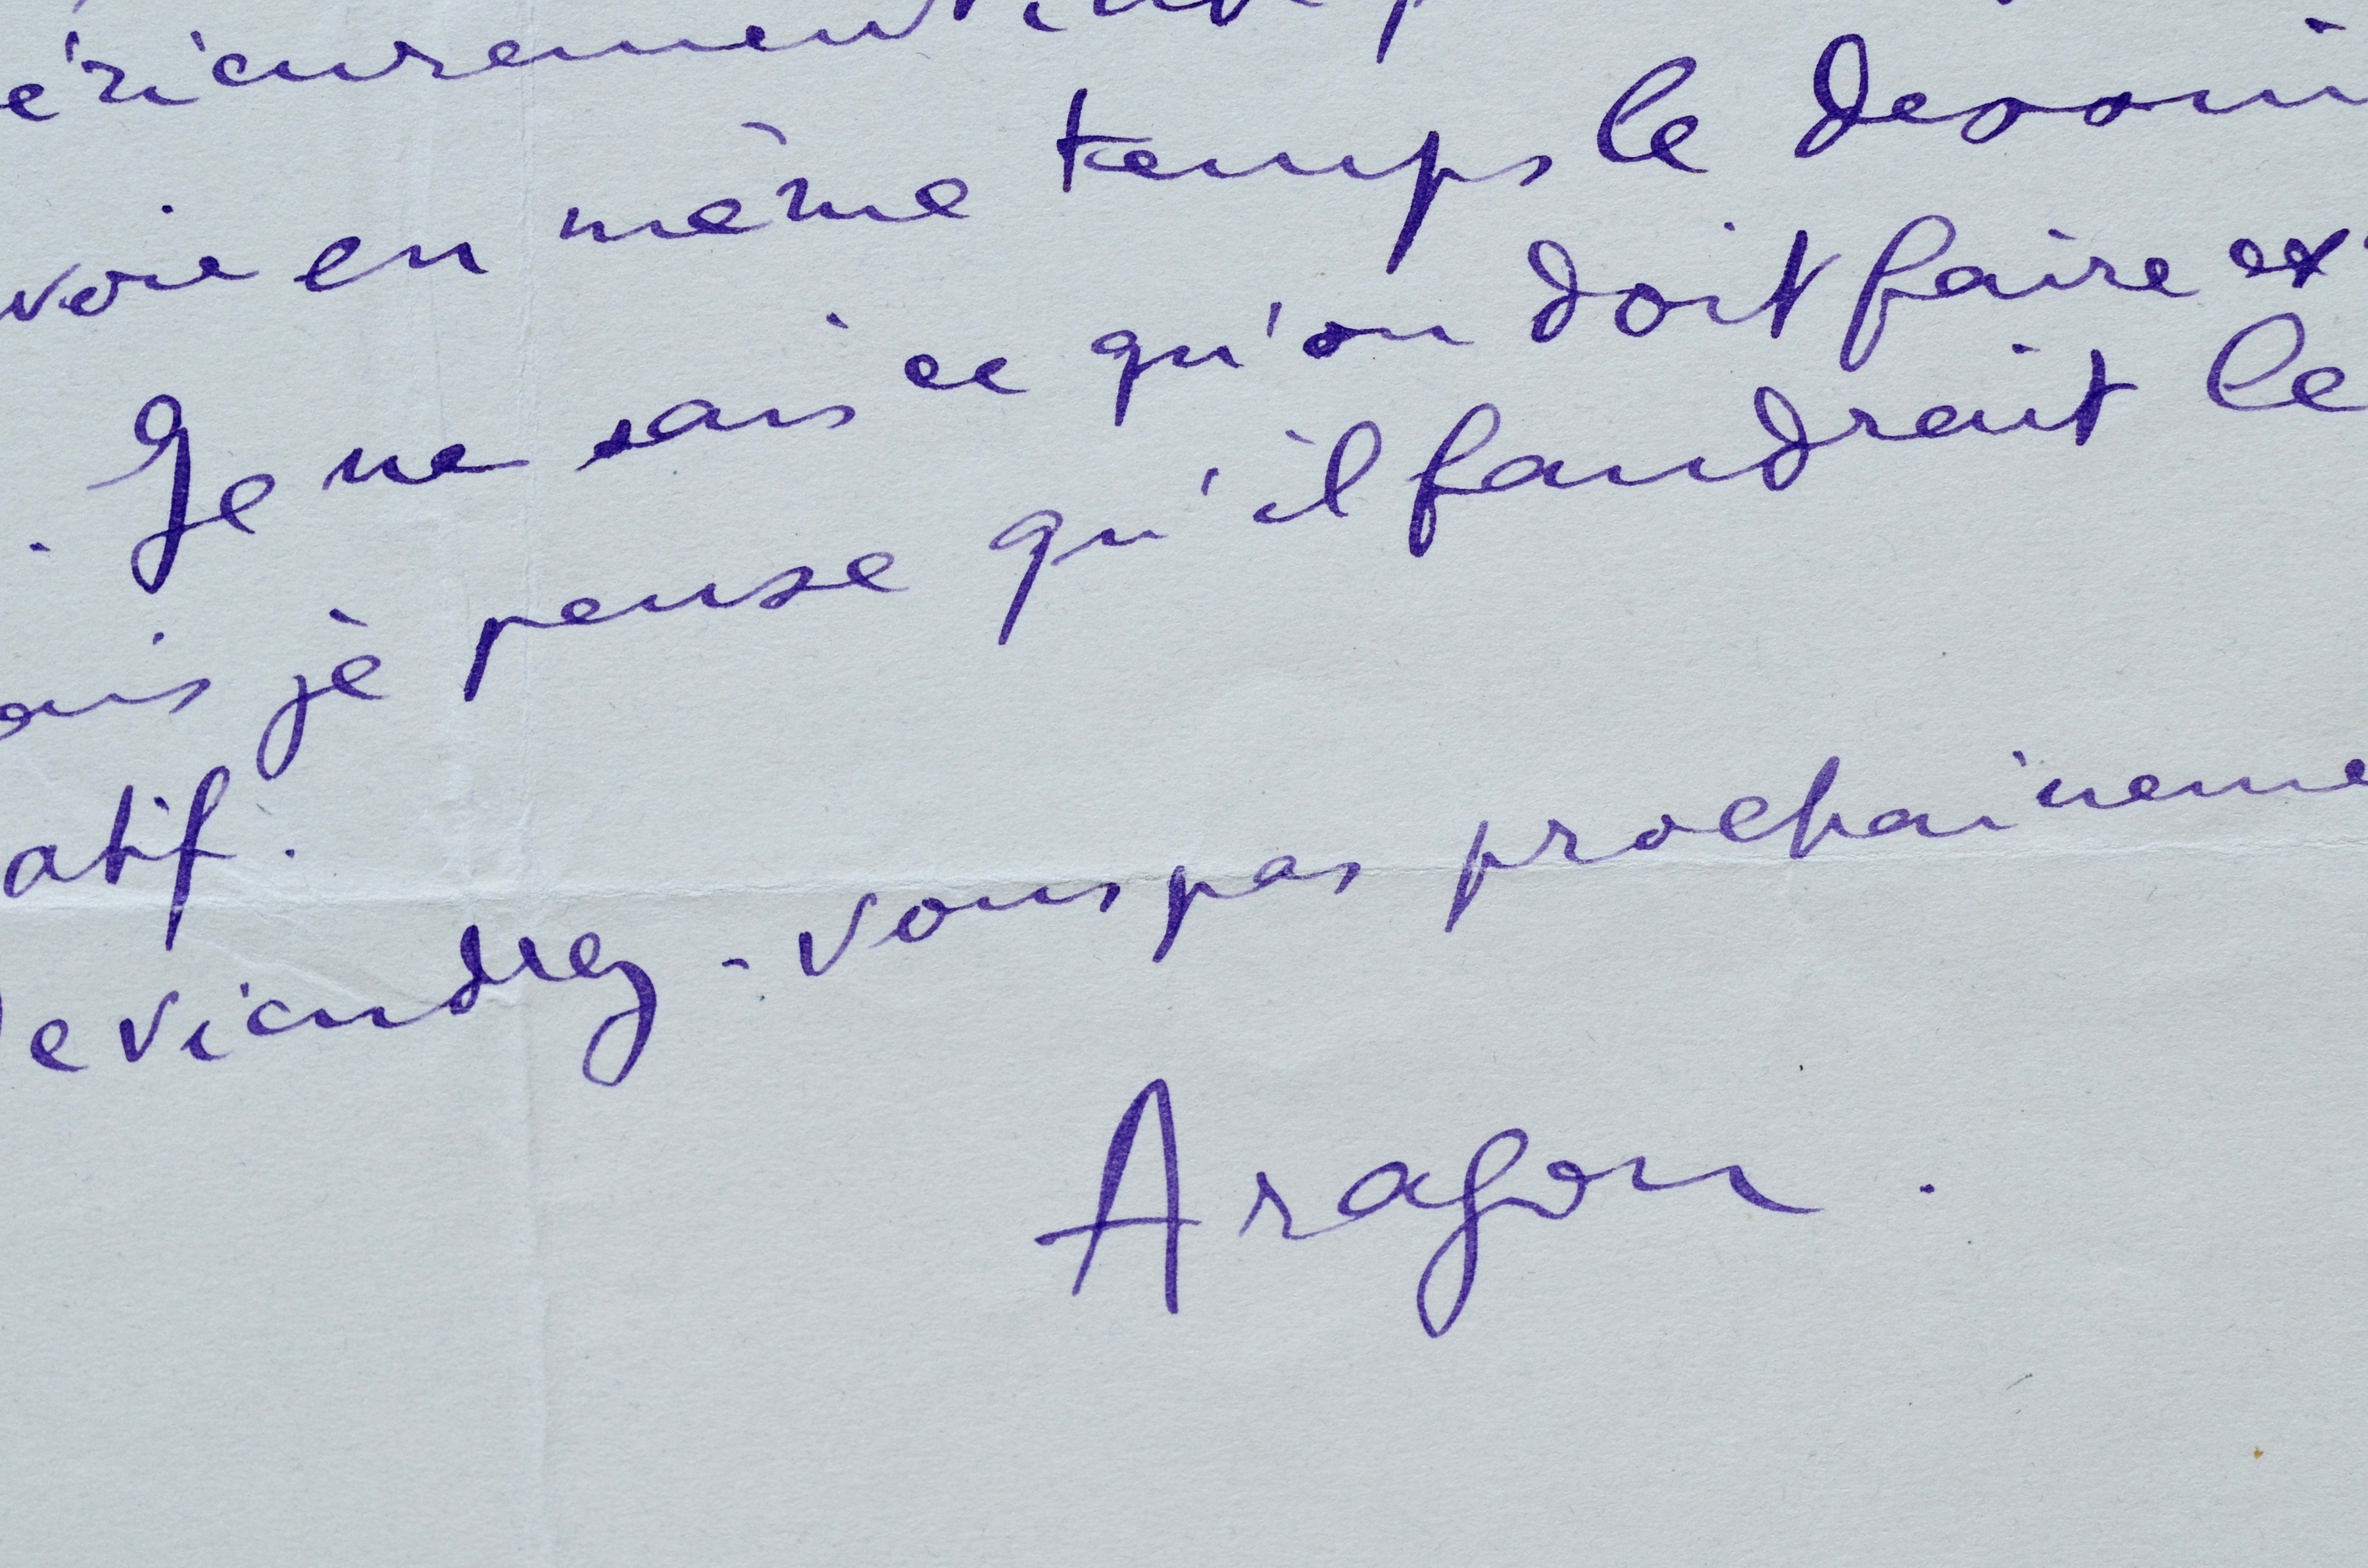 érieurement
voie en même temps le dessin
. Je ne sais ce qu'on doit faire et
ais je pense qu'il faudrait le
atif.
e viendrez-vous pas prochaineme
Aragon.